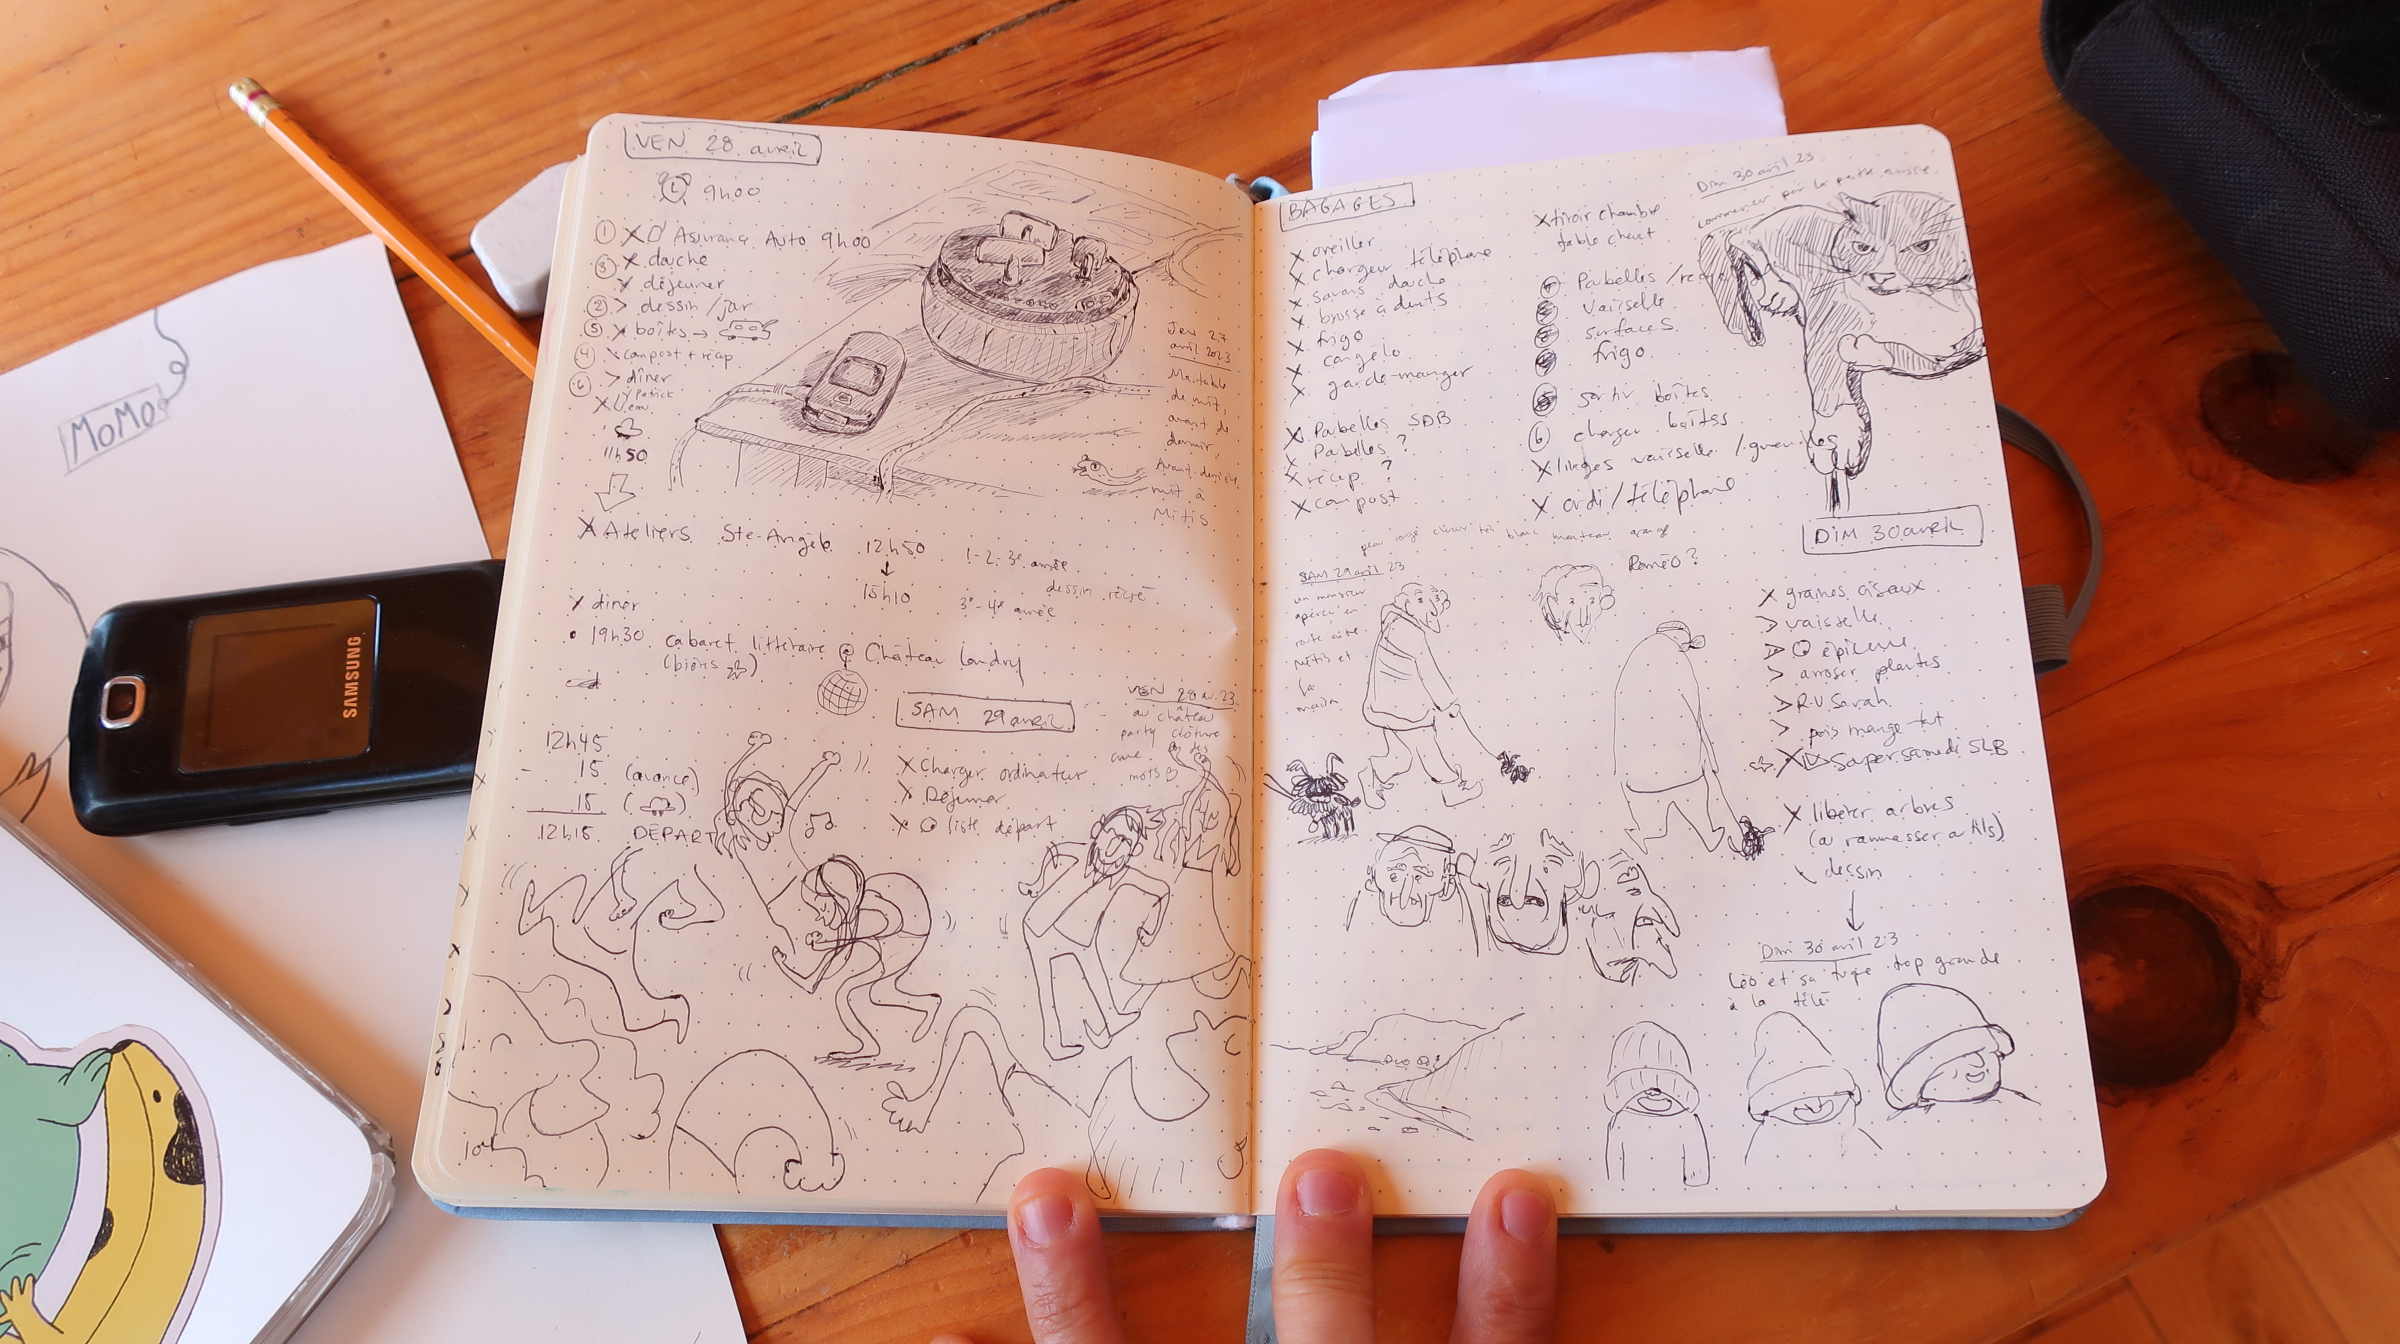 VEN 28 avril
9h00
① X Assurance Auto 9h00
③ X douche
Y déjeuner
② > dessin / jar
⑤ X boîtes →
④ X compost + récup
⑥ > dîner
Y Patrick
X L'eau
11h50
X Ateliers Ste-Angèle 12h50
15h10
1-2-3e année
dessin récré
3e-4e année
Y dîner
• 19h30 cabaret littéraire @ Château Landry
(bières)
Jeu 27
avril 2023
Ma table
de nuit,
avant de
dormir.
Avant-dernière
nuit à
Mitis
12h45
- 15 (avance)
15
12h15 DÉPART
SAM 29 avril
X Charger ordinateur
X Déjeuner
X liste départ
VEN 28 av. 23
au château
party clôture
des
mots
BAGAGES
X oreiller
X chargeur téléphone
X savons douche
X brosse à dents
X frigo
X congelo
X garde-manger
X Pabelles SDB
X Pabelles ?
X récup ?
X compost
X tiroir chambre
table chevet
Pabelles / récup
vaisselle
surfaces
frigo
sortir boîtes
⑥ charger boîtes
X linges vaisselle / guenilles
X ordi / téléphone
Dim 30 avril 23
commencer par la patte
DIM 30 avril
X graines oiseaux
> vaisselle
épicerie
> arroser plantes
> R-V Sarah
> pois mange-tout
X Super samedi SLB
X libérer arbres
(à ramasser)
dessin
SAM 29 avril 23
un monsieur
aperçu en
route entre
Métis et
la
maison
Roméo ?
Dim 30 avril 23
Léo et sa tuque trop grande
à la télé
MOMO
SAMSUNG